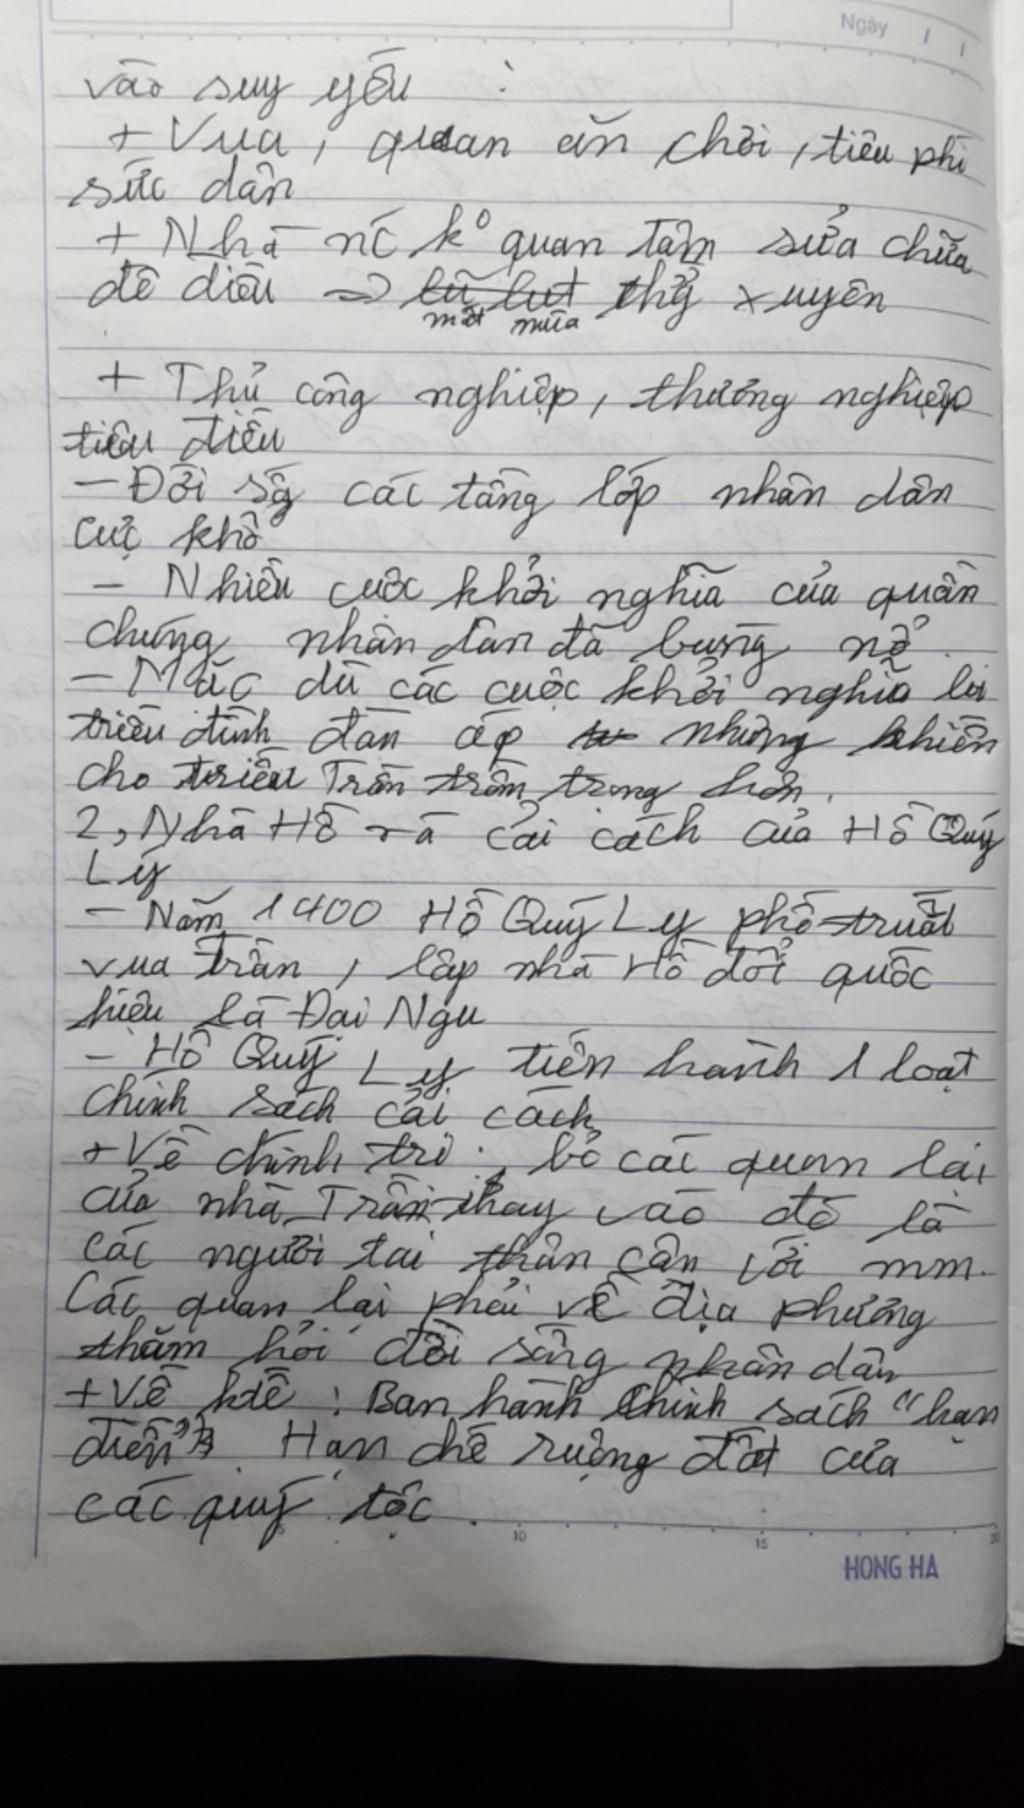 Ngày
vào suy yếu :
+ Vua, quan ăn chơi, tiêu phí
sức dân
+ Nhà nc k° quan tâm sửa chữa
đê điều => lũ lụt thg xuyên
mất mùa
+ Thủ công nghiệp, thương nghiệp
tiêu điều
- Đời sg các tầng lớp nhân dân
cực khổ
- Nhiều cuộc khởi nghĩa của quần
chúng nhân dân đã bùng nổ.
- Mặc dù các cuộc khởi nghĩa bị
triều đình đàn áp nhưng khiến
cho triều Trần trầm trọng hơn.
2, Nhà Hồ và cải cách của Hồ Quý
Ly
- Năm 1400 Hồ Quý Ly phế truất
vua Trần, lập nhà Hồ đổi quốc
hiệu là Đại Ngu
- Hồ Quý Ly tiến hành 1 loạt
chính sách cải cách
+ Về chính trị : bỏ các quan lại
của nhà Trần thay vào đó là
các người tài thân cận với mm.
Các quan lại phải về địa phương
thăm hỏi đời sống nhân dân
+ Về ktế : Ban hành chính sách "hạn
điền". Hạn chế ruộng đất của
các quý tộc.
10 15 20
HONG HA